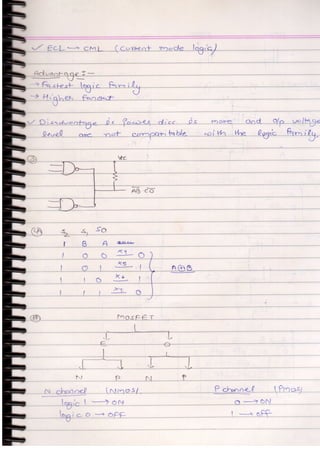 ✓ ECL → CML (Current mode logic)
Advantage :-
→ Fastest logic Family
→ Higher Fanout
✓ Disadvantage is Power diss is more and o/p voltage
level are not compatible with the logic Family.
Vcc
AB CD
S2 S1 S0
1 B A
1 0 0 0
1 0 1 1
1 1 0 1
1 1 1 0
A⊕B
MOSFET
E D
N P N P
N channel (Nmos) P channel (Pmos)
logic 1 → ON 0 → ON
logic 0 → OFF 1 → off